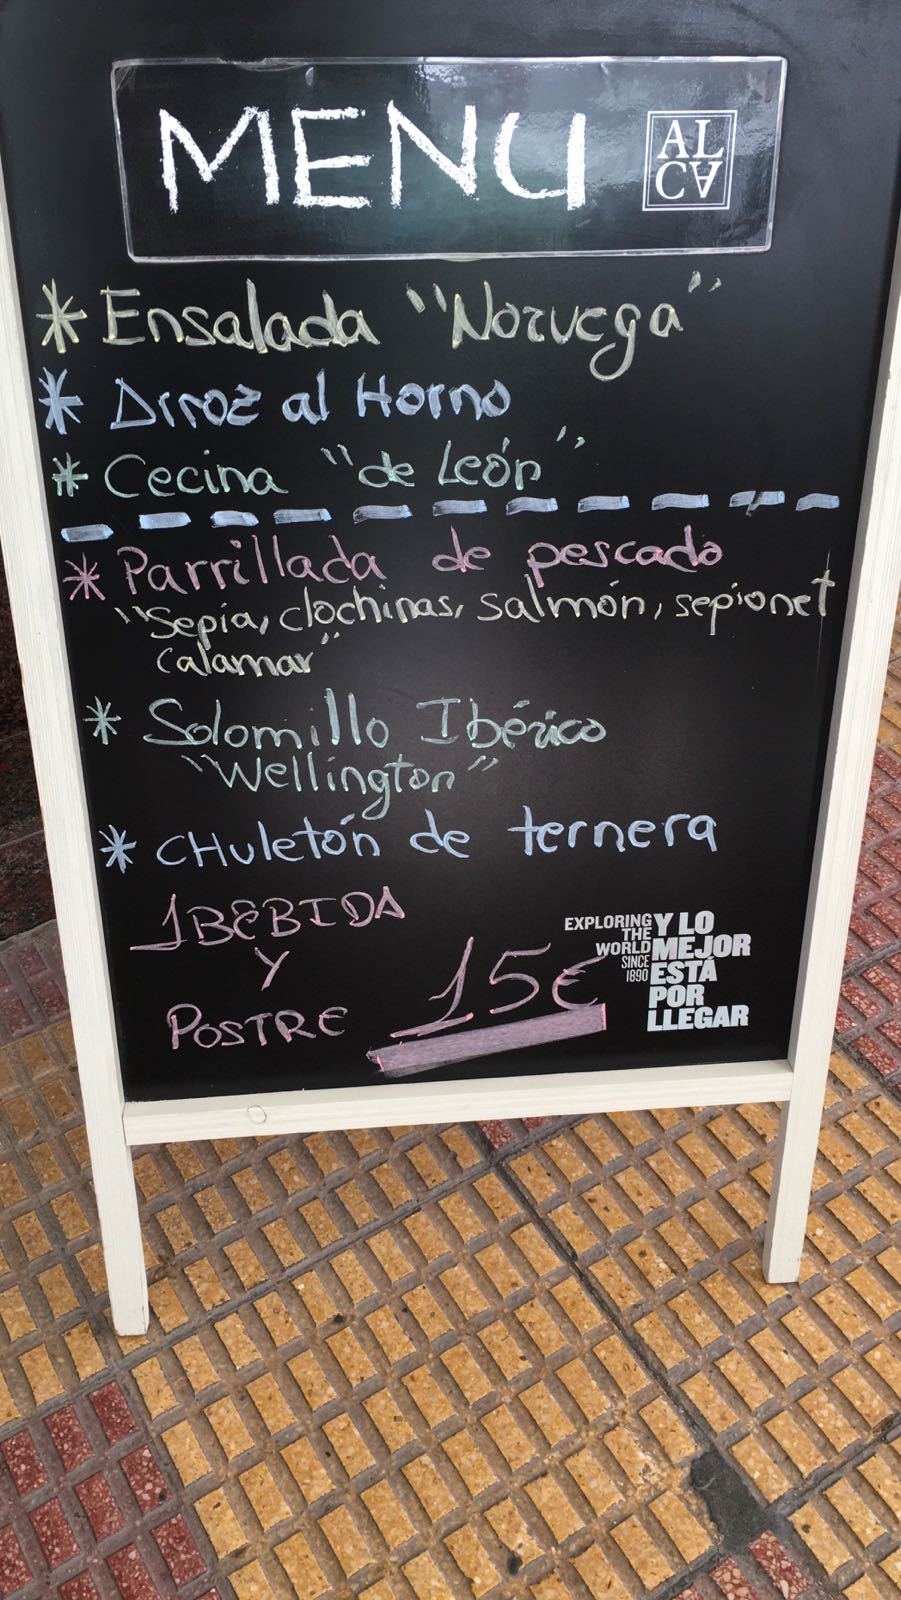 MENU
AL
CA
* Ensalada "Noruega"
* Arroz al Horno
* Cecina "de León"
* Parrillada de pescado
"Sepia, clochinas, salmón, sepionet
calamar"
* Solomillo Ibérico
"Wellington"
* CHuletón de ternera
1 BEBIDA
Y
POSTRE
15€
EXPLORING
THE
WORLD
SINCE
1890
Y LO
MEJOR
ESTÁ
POR
LLEGAR